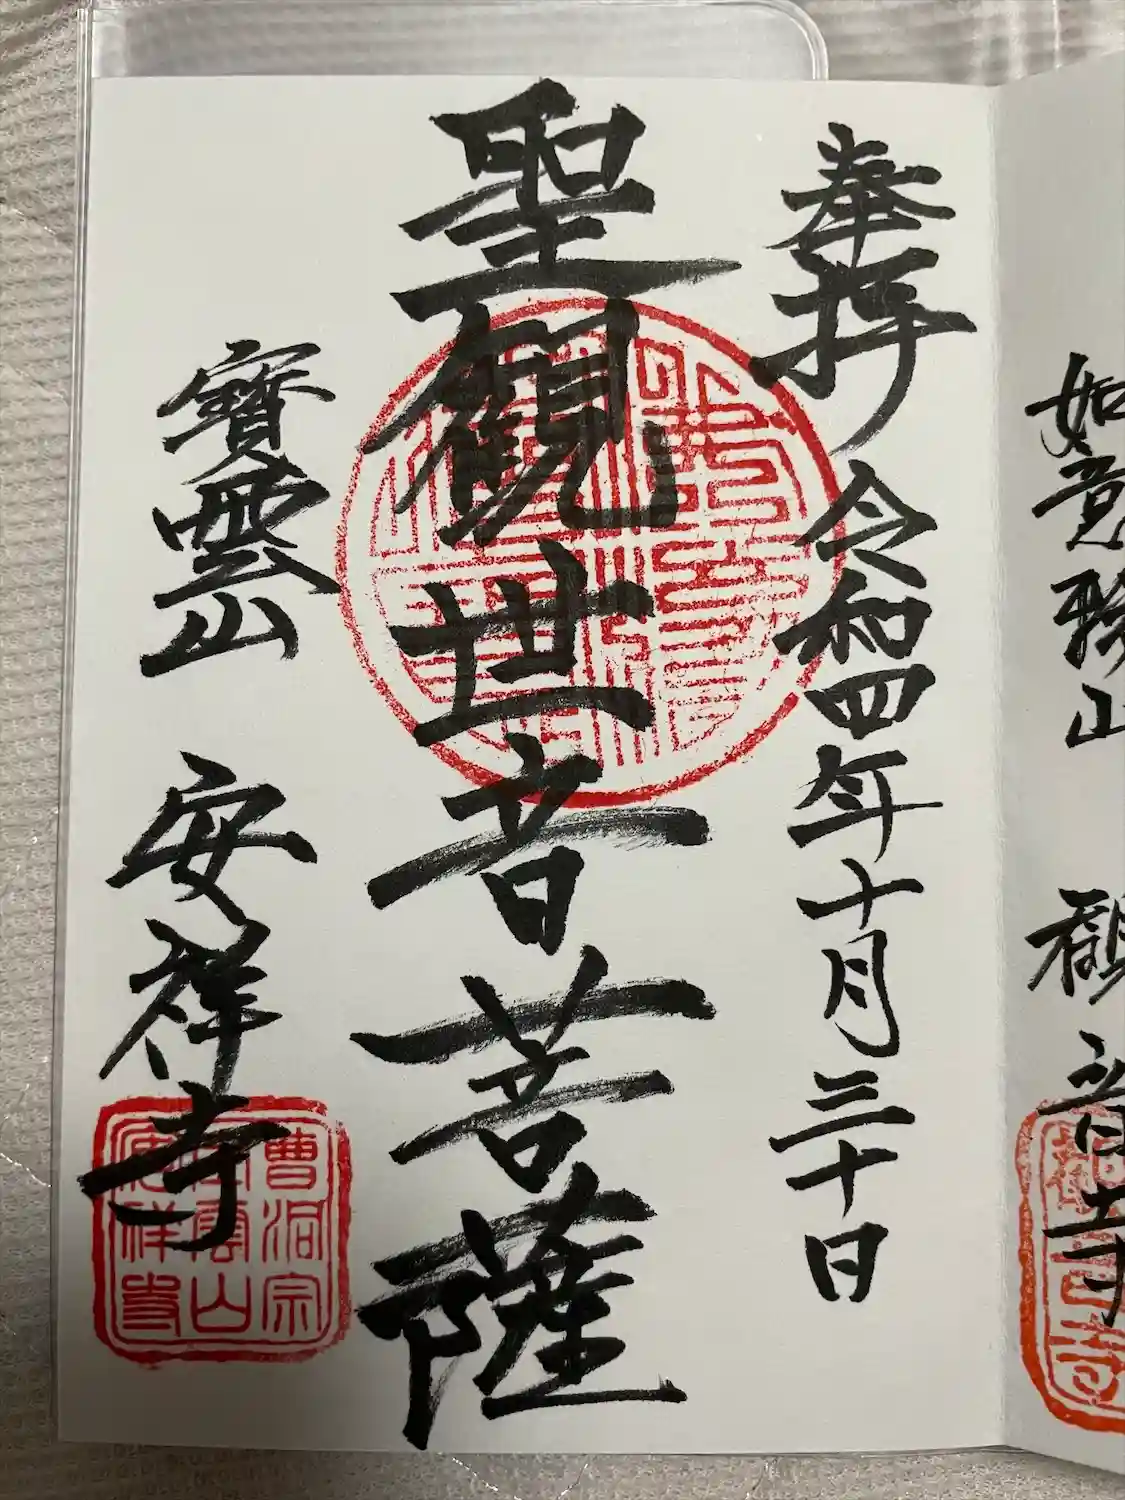 奉拝 令和四年十月三十日
聖観世音菩薩
寶雲山 安祥寺
曹洞宗
寶雲山
安祥寺
如意珠山 観音寺